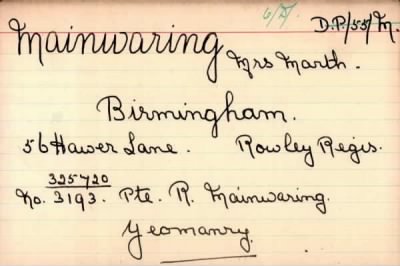 6/2/. D.P./55/M.
Mainwaring Mrs Marth.
Birmingham.
56 Hawer Lane. Rowley Regis.
325720
No. 3193. Pte. R. Mainwaring.
Yeomanry.